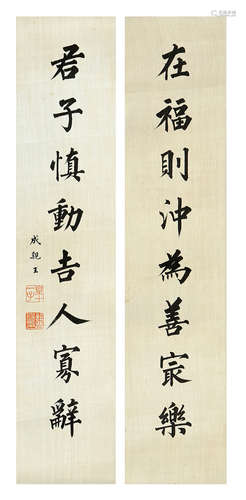 在福則沖為善㝡樂
君子慎動吉人寡辭
成親王